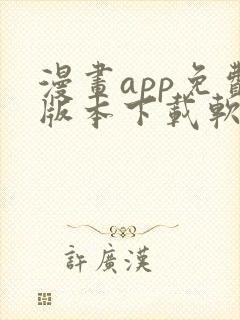 漫畫app免費
版本下載軟
許廣漢